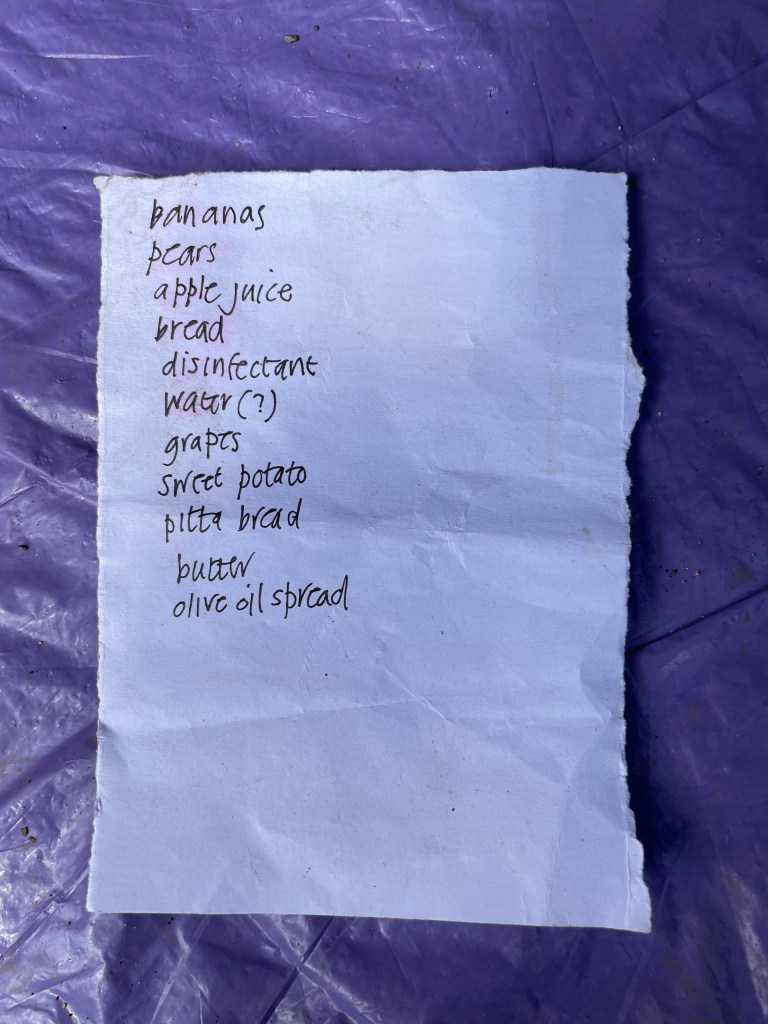 bananas
pears
apple juice
bread
disinfectant
water (?)
grapes
sweet potato
pitta bread
butter
olive oil spread